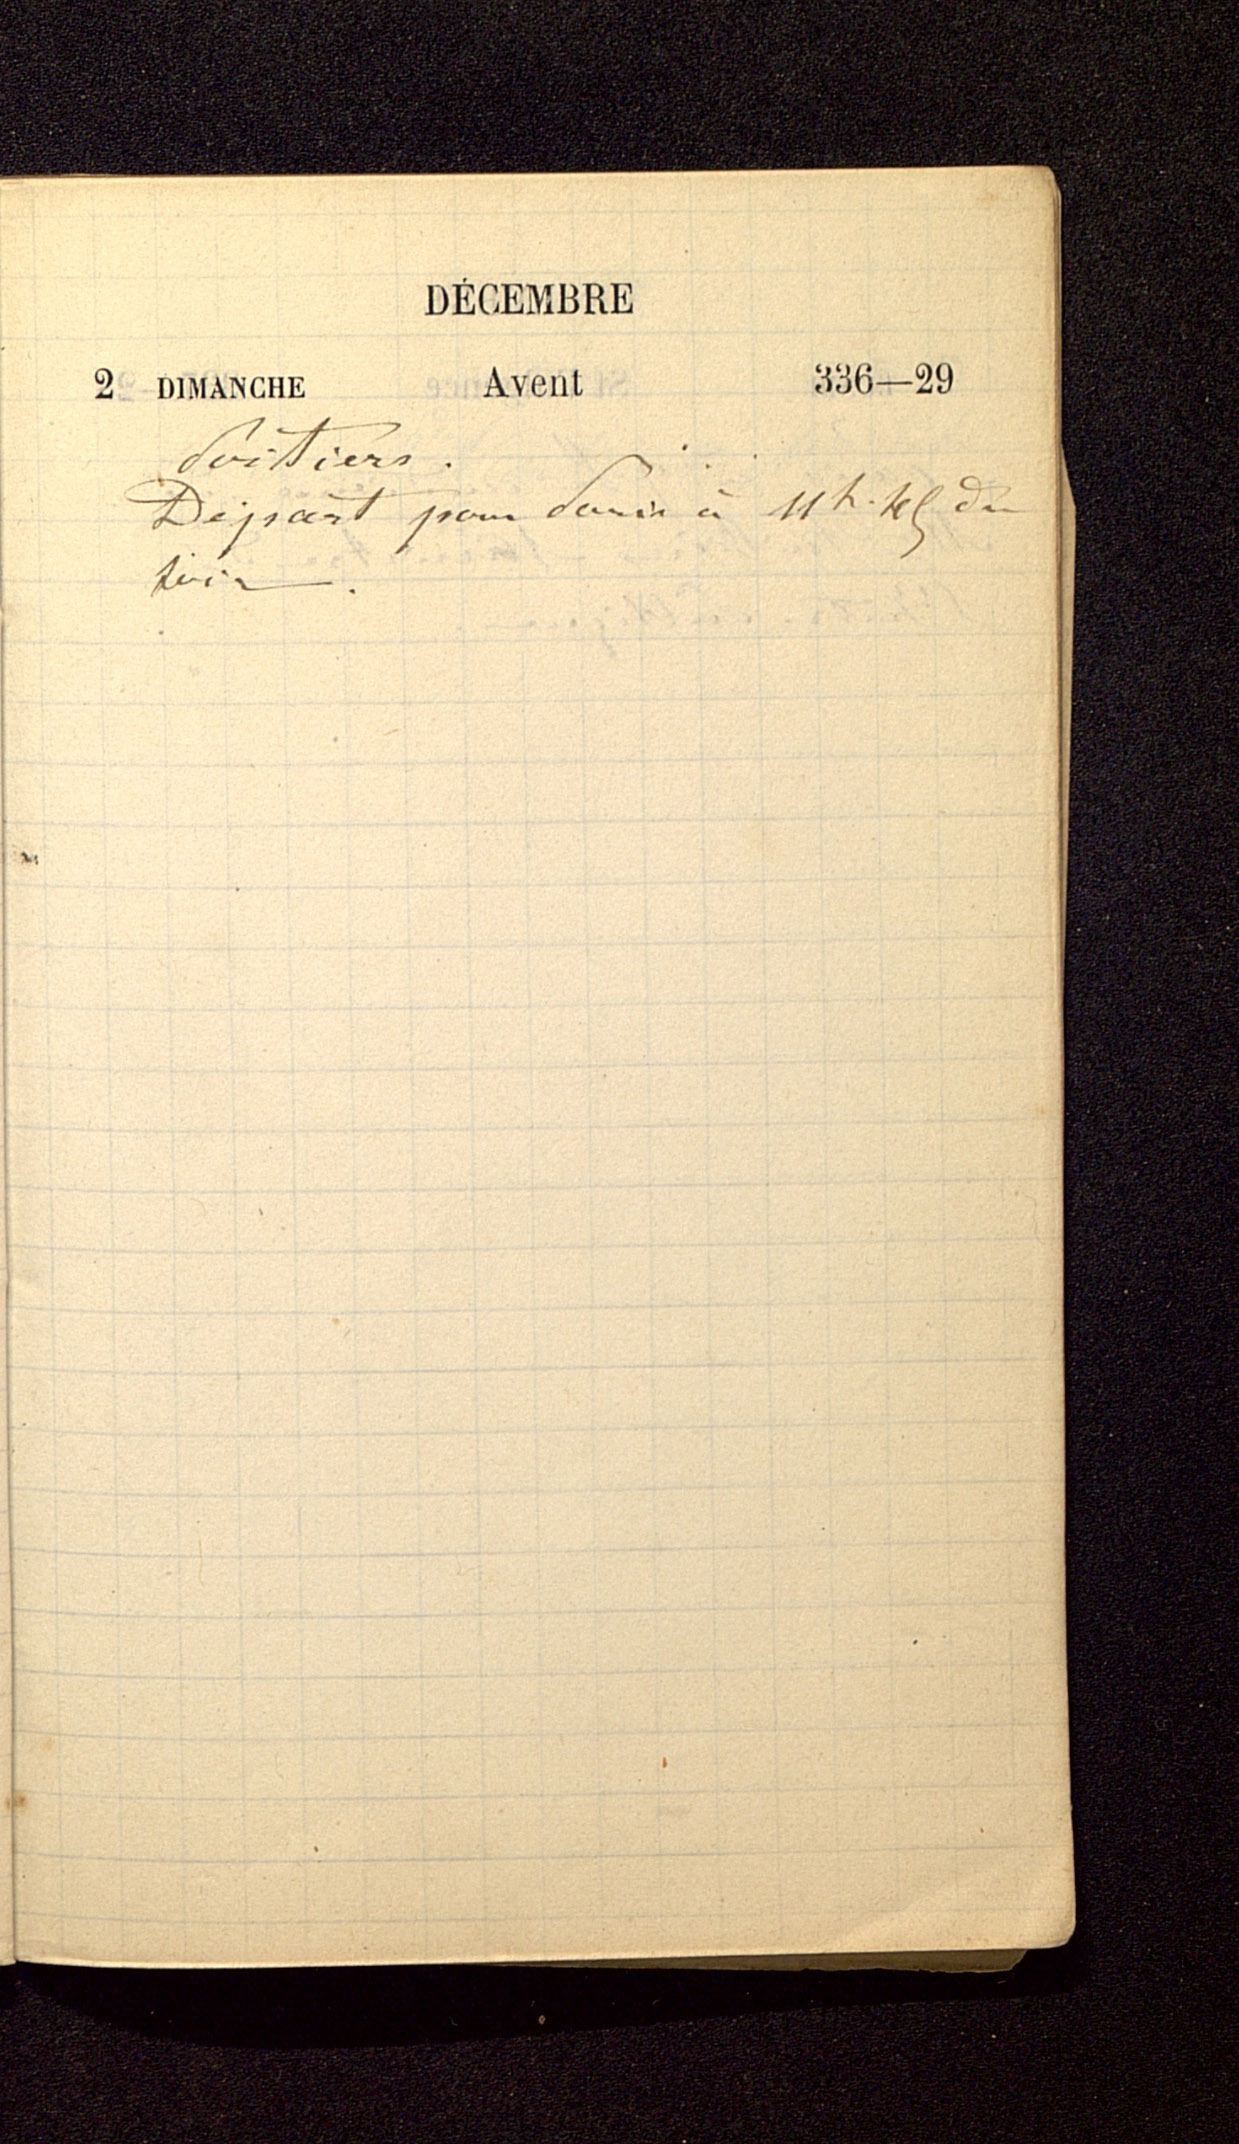 DÉCEMBRE
2 DIMANCHE Avent 336—29
Poitiers.
Départ pour Paris à 11h.45 du
soir.